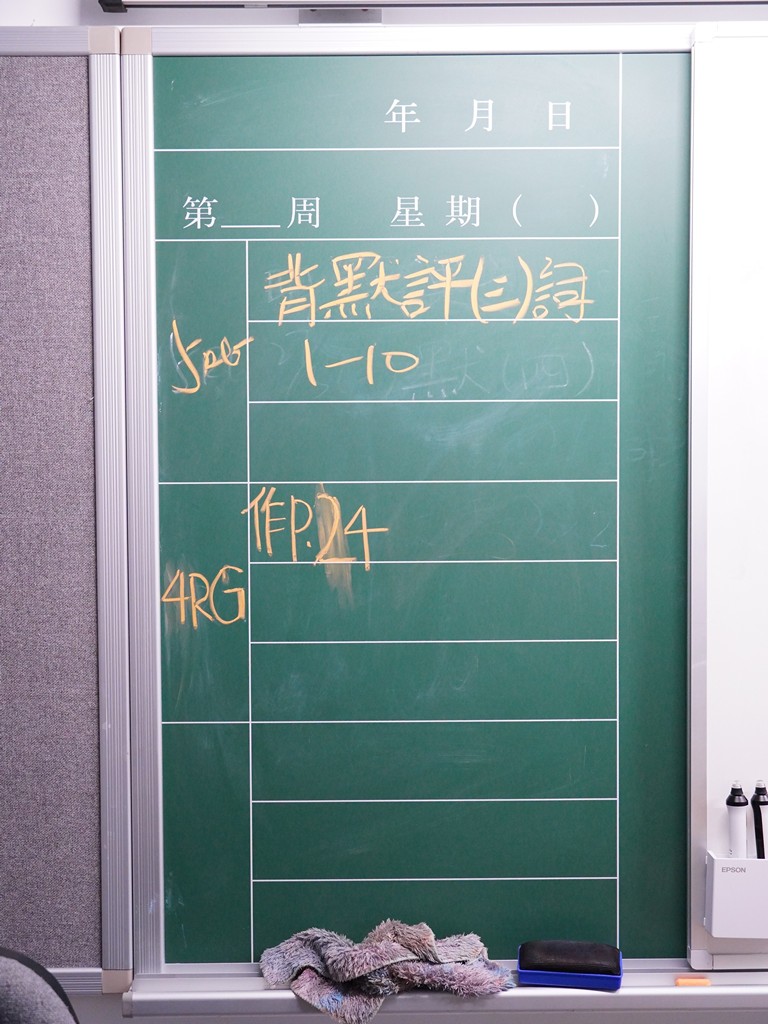 年 月 日
第___周 星期( )
背默評(三)詞
5RG 1-10
作P.24
4RG
EPSON